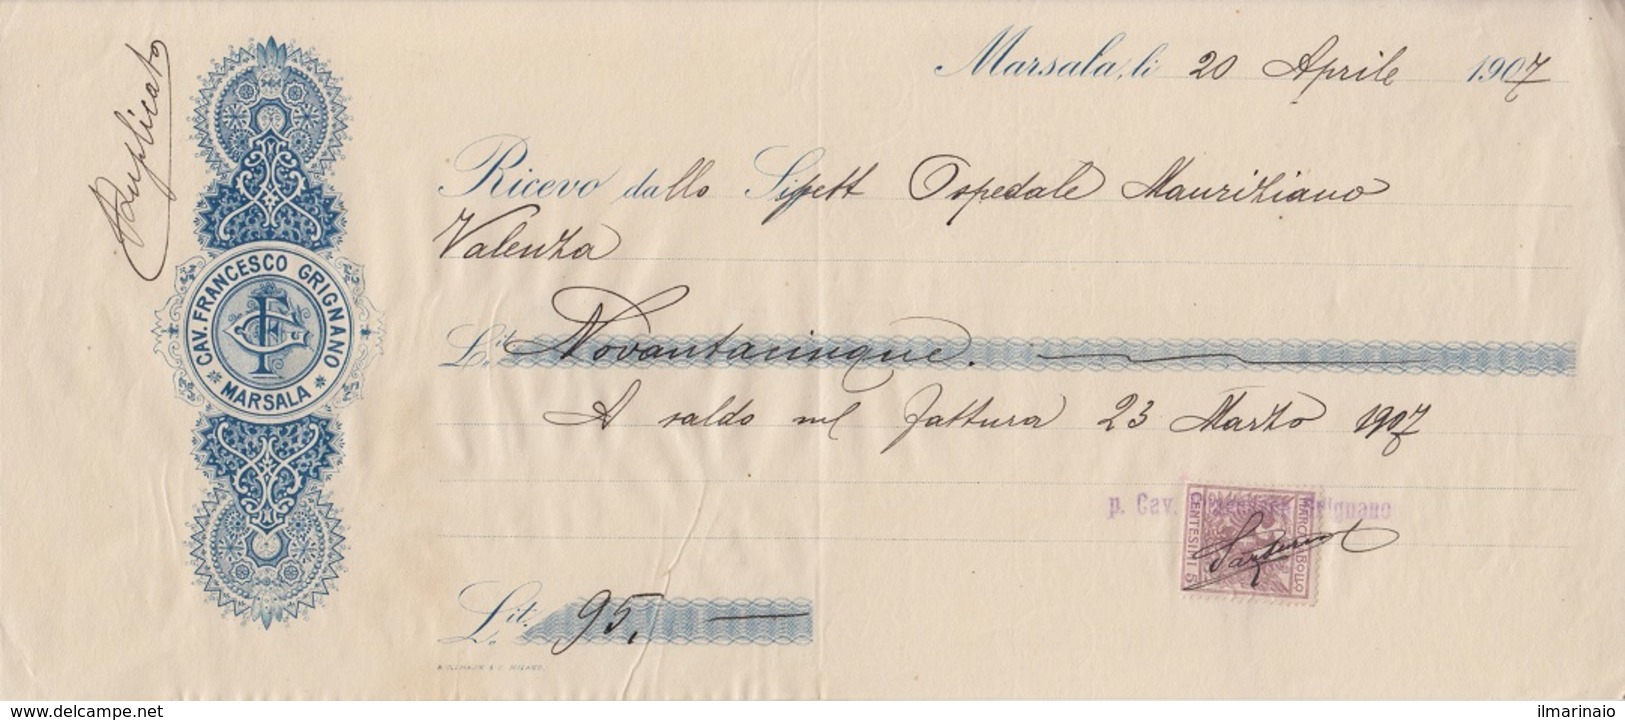 Duplicato
Marsala, li 20 Aprile 1907
Ricevo dallo Spett Ospedale Mauriziano
Valenza
CAV. FRANCESCO GRIGNANO
MARSALA
L.it Novantacinque.
A saldo mf fattura 23 Marzo 1907
p. Cav. Francesco Grignano
MARCA DA BOLLO
CENTESIMI 5
L.it. 95,
& C. MILANO.
www.delcampe.net
ilmarinaio